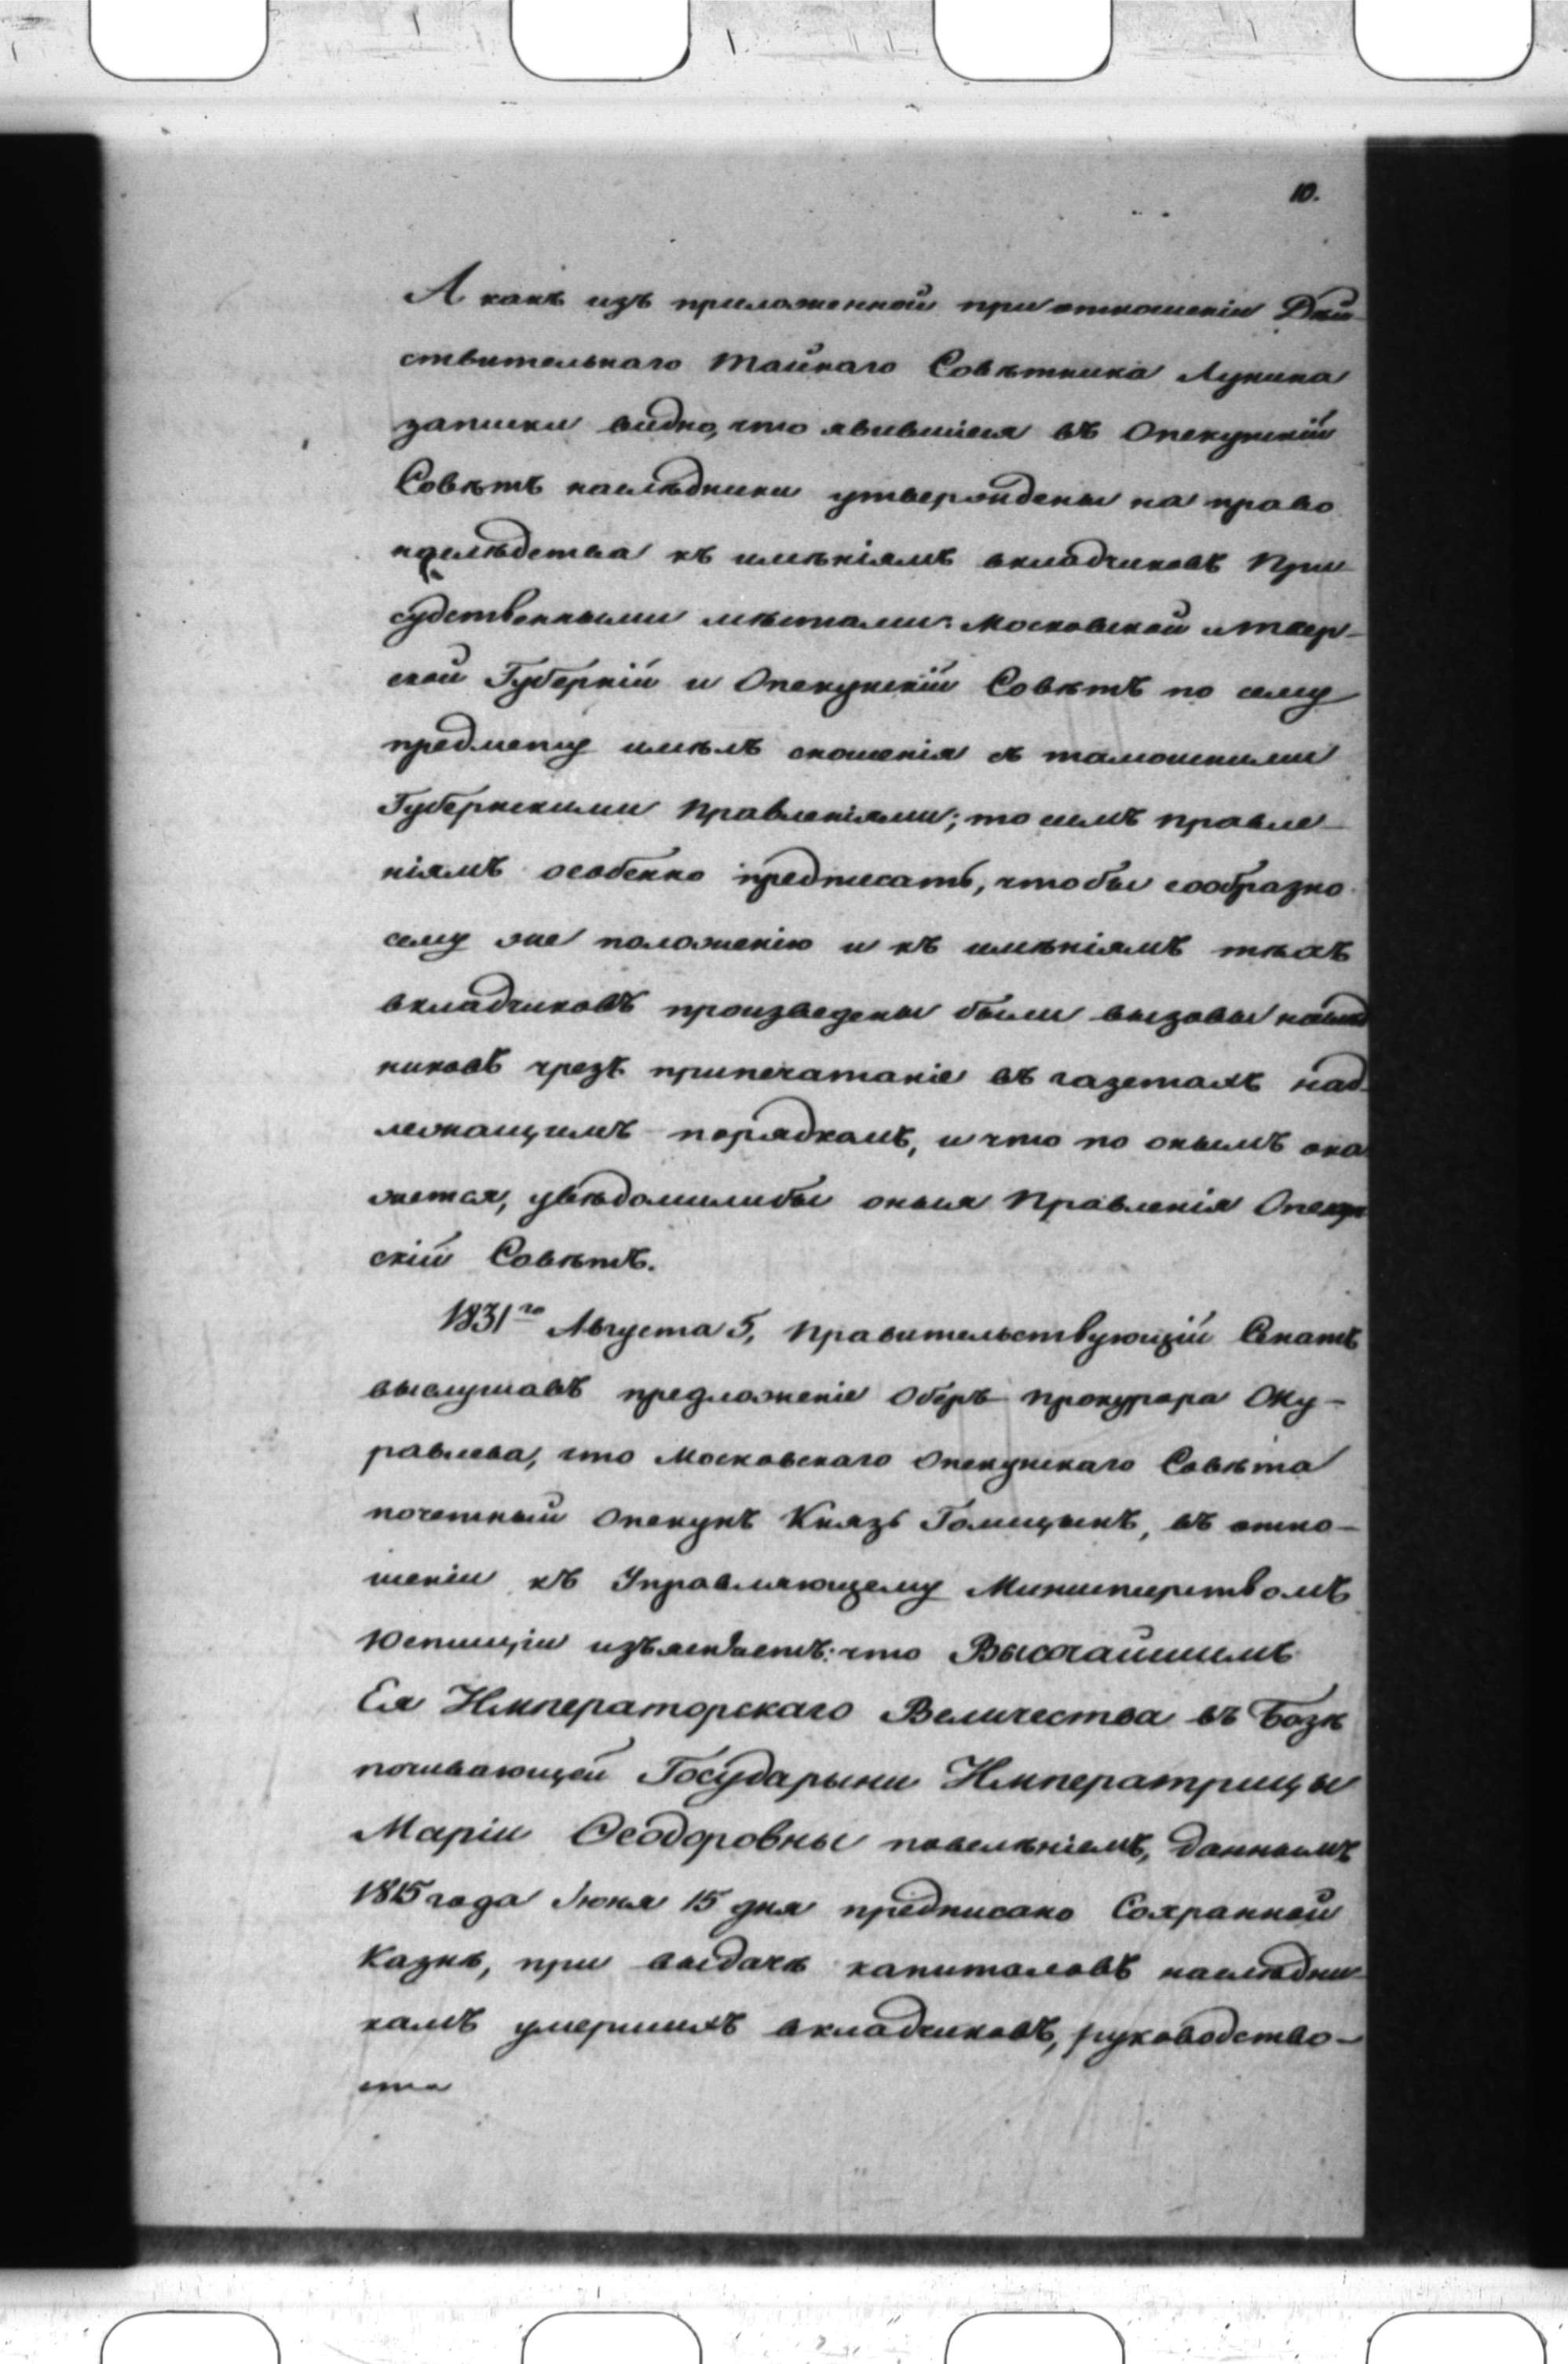 10.
А какъ изъ приложенной при отношеніи Дѣй-
ствительнаго Тайнаго Совѣтника Лунина
записки видно, что явившіеся въ Опекунскій
Совѣтъ наслѣдники утверждены на право
наслѣдства къ имѣніямъ вкладчиковъ При
судственными мѣстами: Московской и Твер-
ской Губерній и Опекунскій Совѣтъ по сему
предмету имѣлъ сношенія съ тамошними
Губернскими Правленіями; то симъ правле-
ніямъ особенно предписать, чтобы сообразно
сему же положенію и къ имѣніямъ тѣхъ
вкладчиковъ произведены были вызовы наслѣд
никовъ чрезъ припечатаніе въ газетахъ над-
лежащимъ порядкомъ, и что по онымъ ока
жется, увѣдомилибы оныя Правленія Опекун
скій Совѣтъ.
1831го Августа 5, Правительствующій Сенатъ
выслушавъ предложеніе Оберъ Прокурора Жу-
равлева, что Московскаго Опекунскаго Совѣта
почетный Опекунъ Князь Голицынъ, въ отно-
шеніи къ Управляющему Министерствомъ
Юстиціи изъясняетъ: что Высочайшимъ
Ея Императорскаго Величества въ Бозѣ
почивающей Государыни Императрицы
Маріи Ѳеодоровны повелѣніемъ, даннымъ
1815 года Іюня 15 дня предписано Сохранной
Казнѣ, при выдачѣ капиталовъ наслѣдни-
камъ умершихъ вкладчиковъ, руководство-